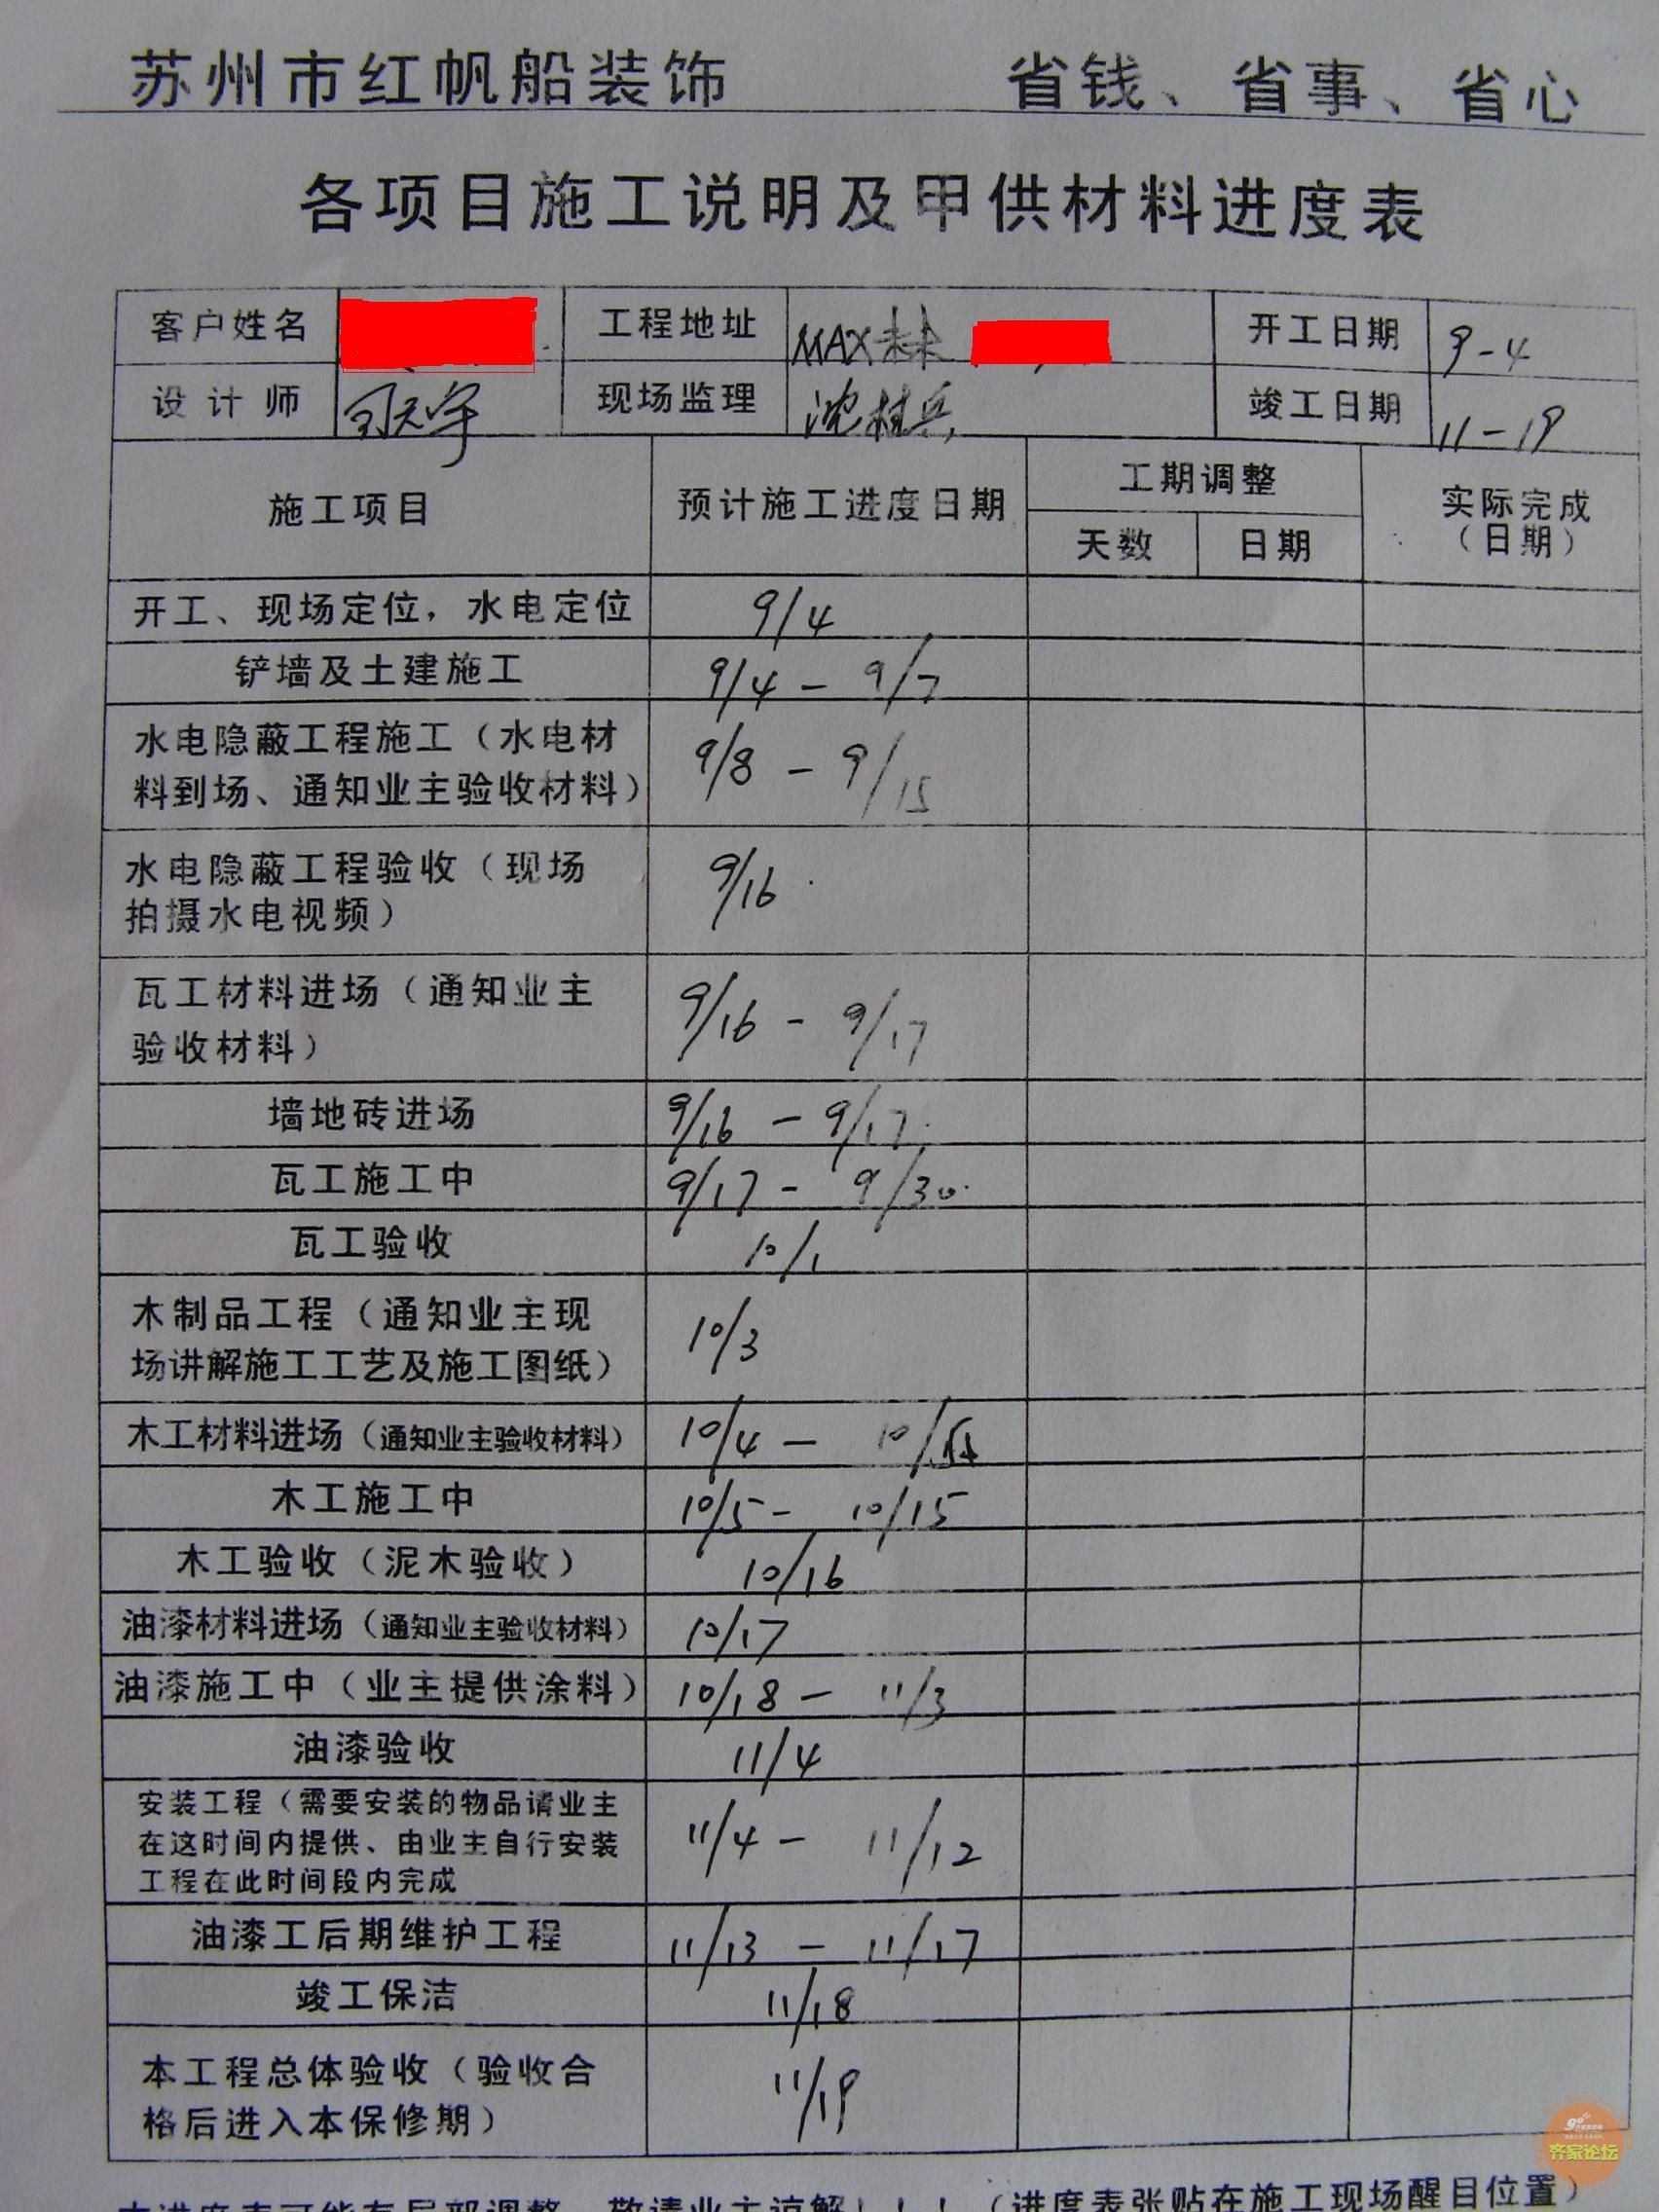 苏州市红帆船装饰 省钱、省事、省心
各项目施工说明及甲供材料进度表
客户姓名 工程地址 MAX 开工日期 9-4
设计师 现场监理 竣工日期 11-19
施工项目 预计施工进度日期 工期调整 实际完成
天数 日期 (日期)
开工、现场定位，水电定位 9/4
铲墙及土建施工 9/4 - 9/7
水电隐蔽工程施工（水电材
料到场、通知业主验收材料） 9/8 - 9/15
水电隐蔽工程验收（现场
拍摄水电视频） 9/16
瓦工材料进场（通知业主
验收材料） 9/16 - 9/17
墙地砖进场 9/16 - 9/17
瓦工施工中 9/17 - 9/30
瓦工验收 10/1
木制品工程（通知业主现
场讲解施工工艺及施工图纸） 10/3
木工材料进场（通知业主验收材料） 10/4 - 10/
木工施工中 10/5 - 10/15
木工验收（泥木验收） 10/16
油漆材料进场（通知业主验收材料） 10/17
油漆施工中（业主提供涂料） 10/18 - 11/3
油漆验收 11/4
安装工程（需要安装的物品请业主
在这时间内提供、由业主自行安装
工程在此时间段内完成 11/4 - 11/12
油漆工后期维护工程 11/13 - 11/17
竣工保洁 11/18
本工程总体验收（验收合
格后进入本保修期） 11/19
本进度表可能有局部调整，敬请业主谅解！！！（进度表张贴在施工现场醒目位置）
齐家论坛